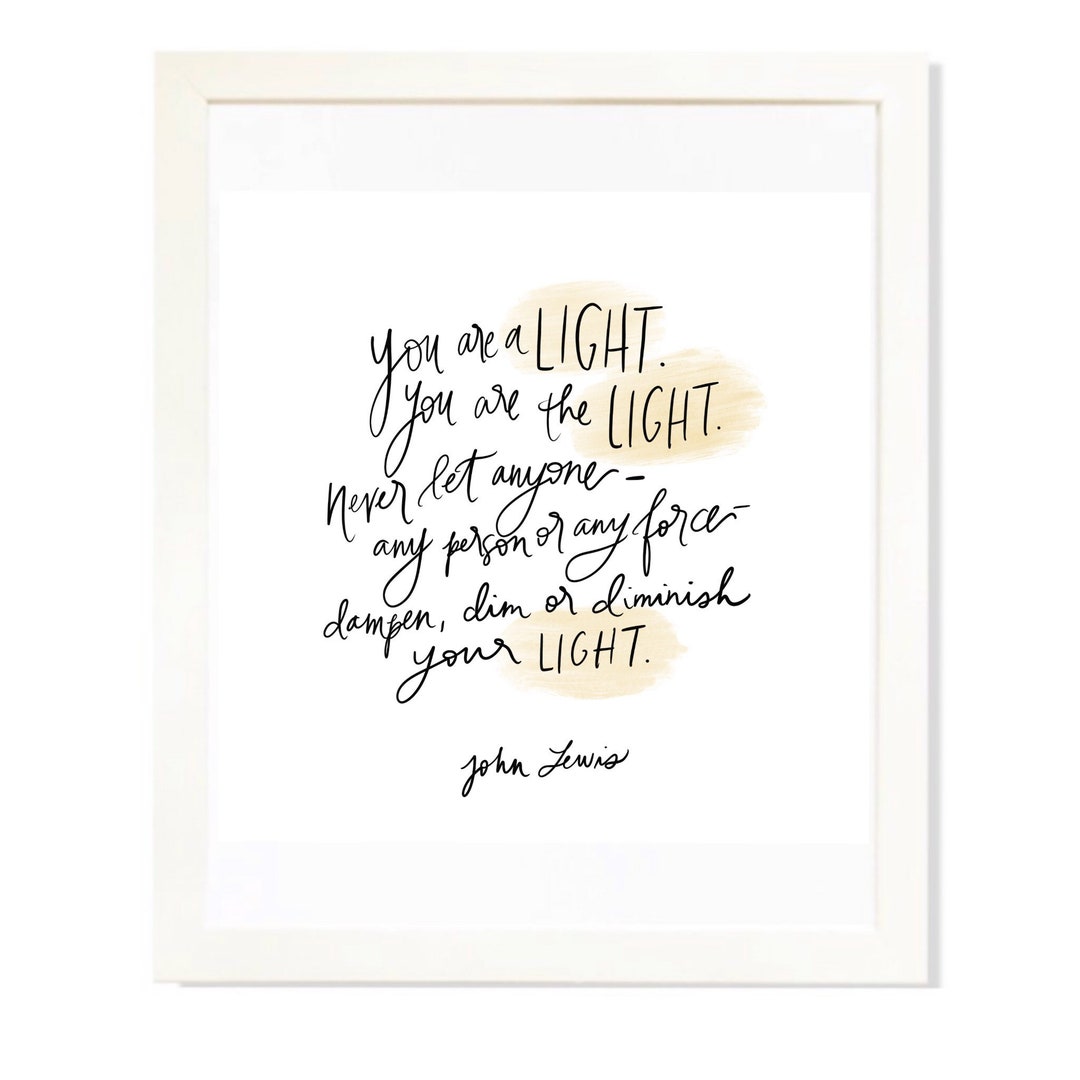 you are a LIGHT.
you are the LIGHT.
Never let anyone–
any person or any force–
dampen, dim or diminish
your LIGHT.
John Lewis